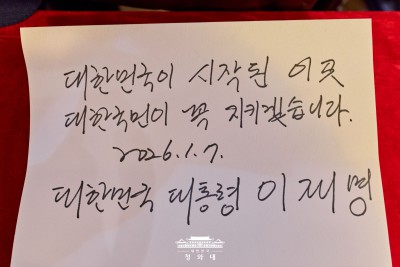 대한민국이 시작된 이곳
대한국민이 꼭 지키겠습니다.
2026.1.7.
대한민국 대통령 이재명
청와대